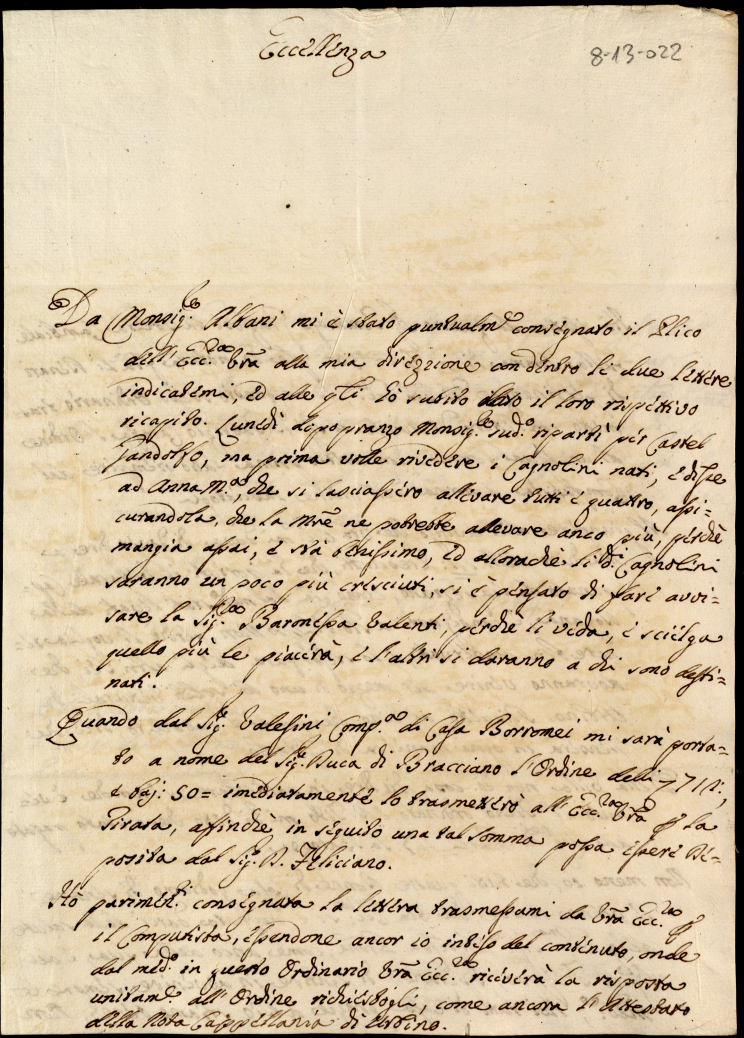 Eccellenza
8-13-022
Da Monsig.re Albani mi è stato puntualm.e consegnato il Plico
dell' Ecc.za Vrã alla mia direzzione con dentro le due lettere
indicatemi, ed alle q̃li hò subito dato il loro rispettivo
ricapito. Lunedì dopo pranzo Monsig.re sud.o ripartì per Castel
Gandolfo, ma prima volle rivedere i Cagnolini nati, e disse
ad Anna M.a, che si lasciassero allevare tutti e quattro, assi=
curandola, che la Mrẽ ne potrebbe allevare anco più, perchè
mangia assai, e stà benissimo, ed allorachè li d.i Cagnolini
saranno un poco più cresciuti, si è pensato di fare avvi=
sare la Sig.ra Baronessa Valenti, perchè li veda, e scielga
quello più le piacerà, e l'altri si daranno a chi sono desti=
nati.
Quando dal Sig.re Valesini Comp.o di Casa Borromei mi sarà porta=
to a nome del Sig.re Duca di Bracciano l'Ordine delli 771:,
e baj: 50= imediatamente lo trasmetterò all' Ecc.za Vrã p la
Tirata, affinchè in seguito una tal somma possa essere De=
posita dal Sig.r D. Feliciano.
Hò pariment.i consegnata la lettera trasmessami da Vrã Ecc.za p
il Computista, essendone ancor io inteso del contenuto, onde
dal med.o in questo Ordinario Vrã Ecc.za riceverà la risposta
unitam.e all' Ordine richiestogli, come ancora l'Attestato
della Nota Cappellania di Urbino.